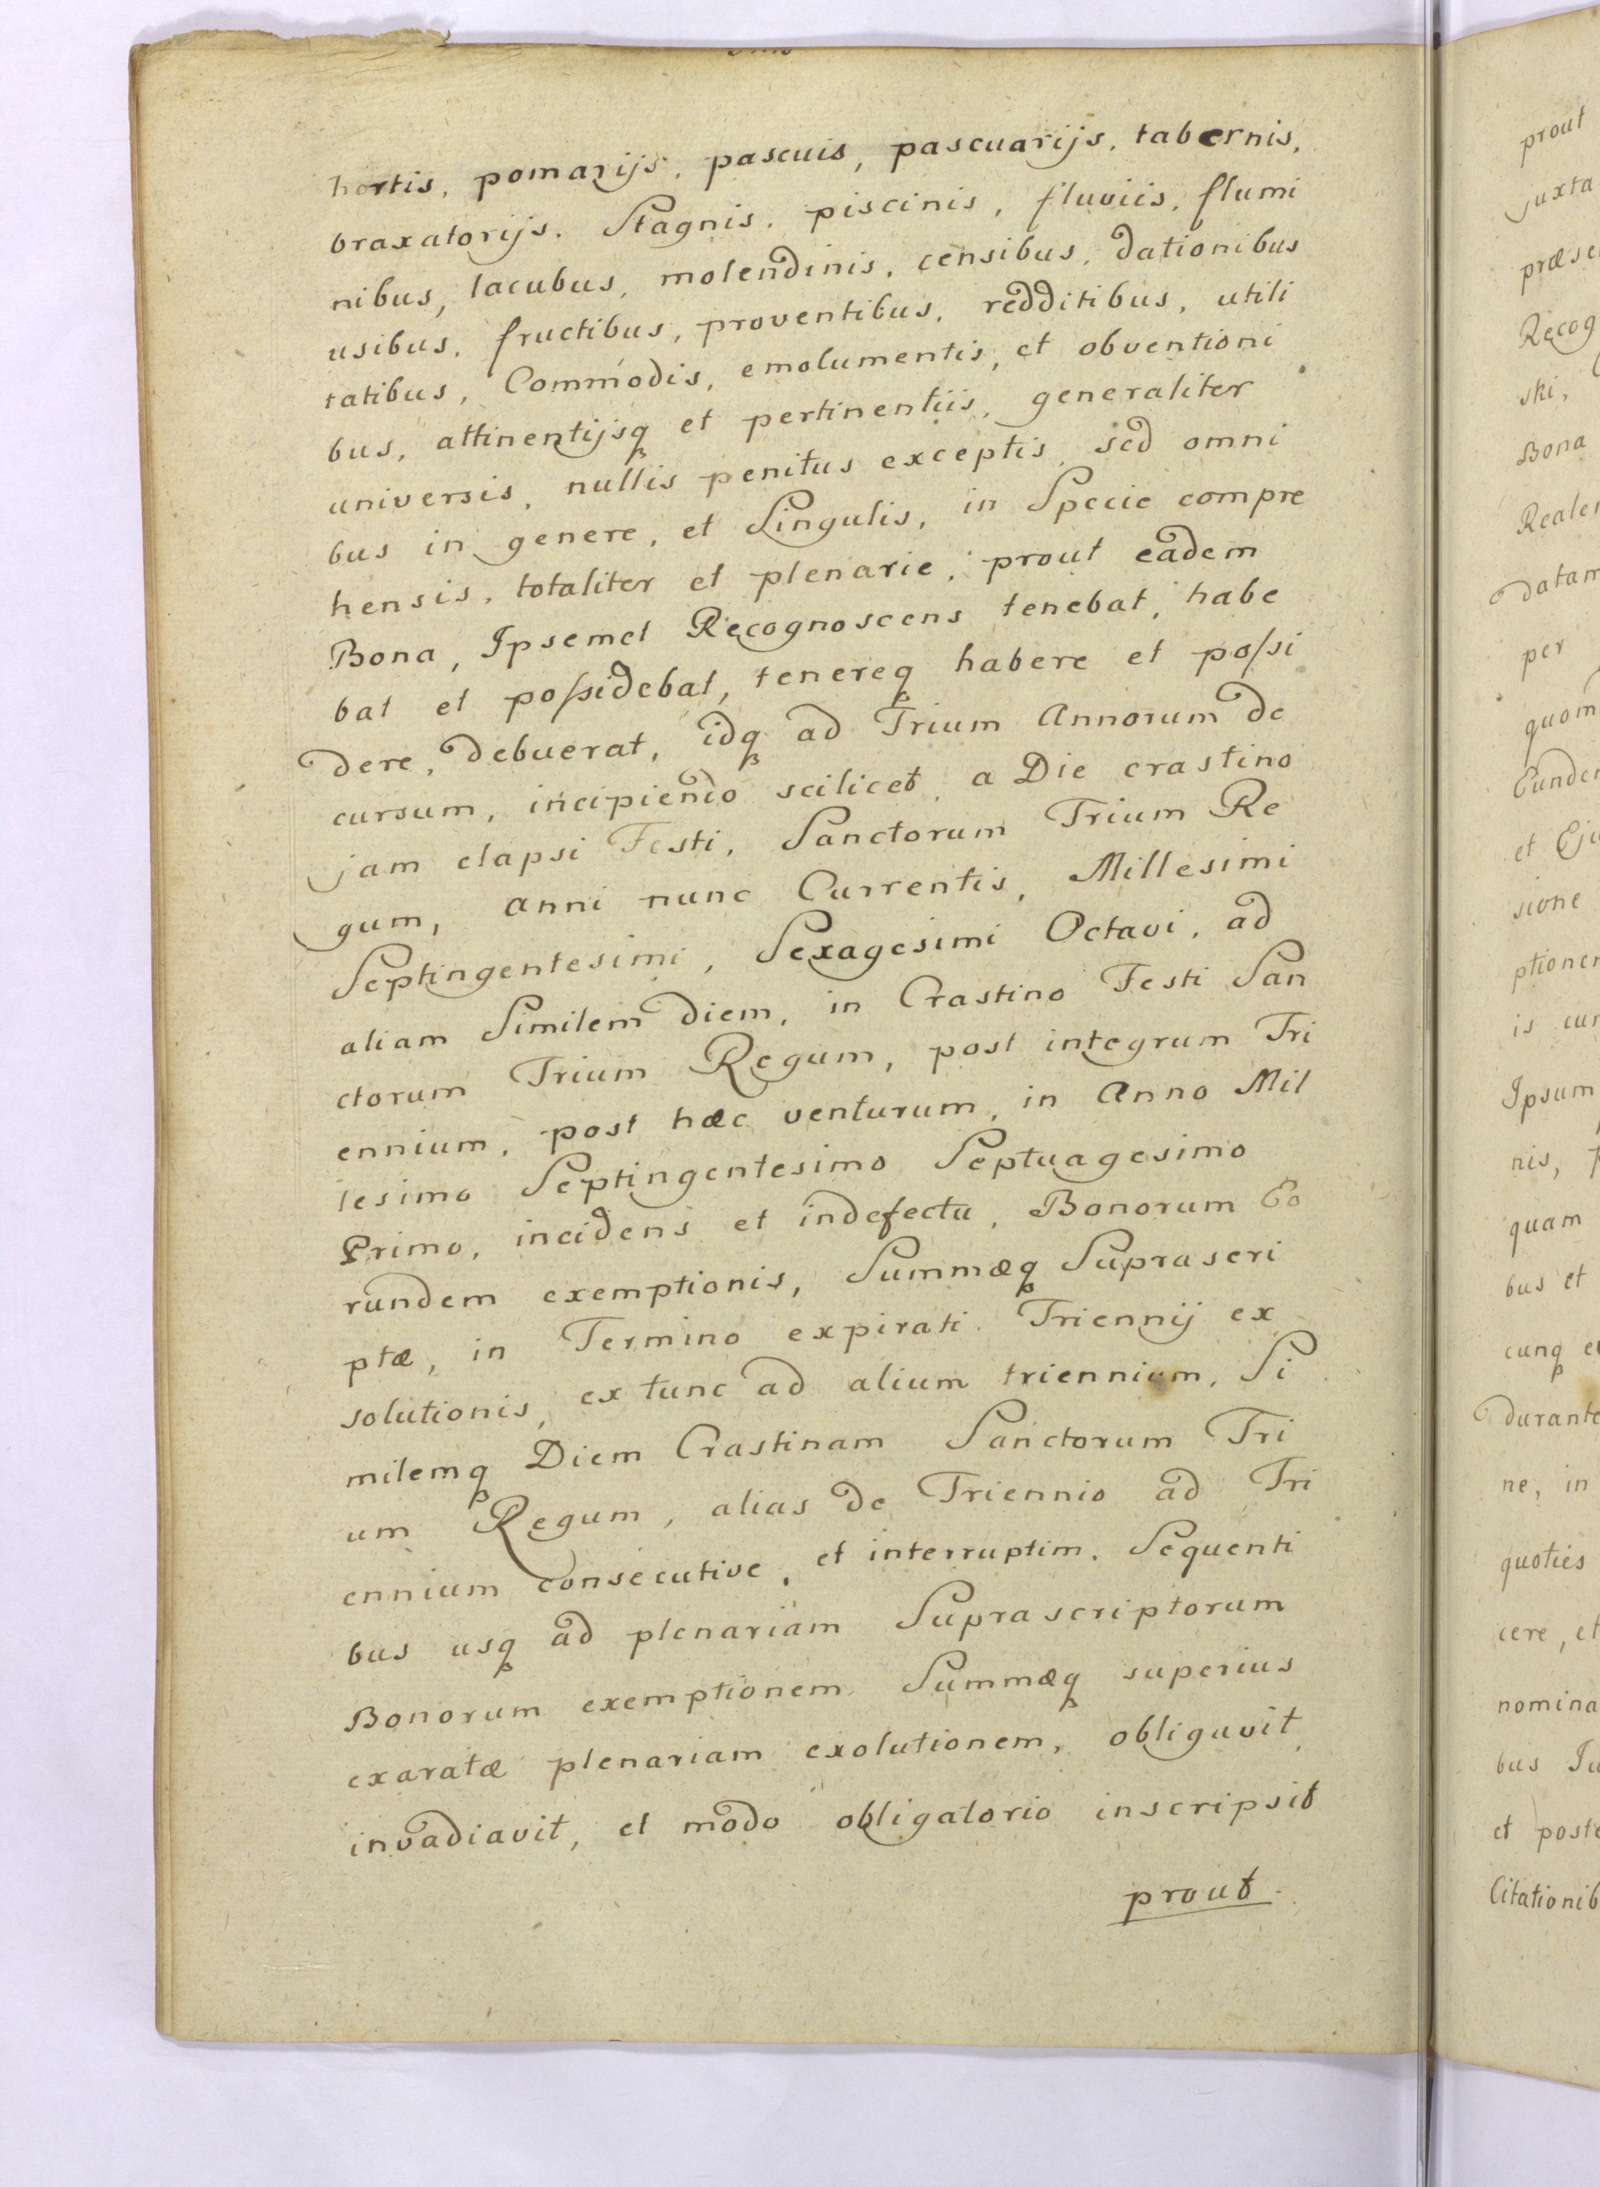 hortis, pomarijs, pascuis, pascuarijs, tabernis,
braxatorijs. Stagnis. piscinis, fluviis, flumi
nibus, lacubus, molendinis, censibus, dationibus
usibus, fructibus, proventibus, redditibus, utili
tatibus, Commodis, emolumentis, et obventioni
bus, attinentijsq et pertinentiis, generaliter
universis, nullis penitus exceptis, sed omni
bus in genere, et Singulis, in Specie compre
hensis, totaliter et plenarie, prout eadem
Bona, Ipsemet Recognoscens tenebat, habe
bat et possidebat, tenereq habere et possi
dere, debuerat, idq ad Trium Annorum de
cursum, incipiendo scilicet, a Die crastino
jam elapsi Festi, Sanctorum Trium Re
gum, anni nunc Currentis, Millesimi
Septingentesimi, Sexagesimi Octavi, ad
aliam Similem diem, in Crastino Festi San
ctorum Trium Regum, post integrum Tri
ennium, post hæc venturum, in Anno Mil
lesimo Septingentesimo Septuagesimo
Primo, incidens et indefectu, Bonorum Eo
rundem exemptionis, Summæq Suprascri
ptæ, in Termino expirati Triennij ex
solutionis, ex tunc ad alium triennium, Si
milemq Diem Crastinam Sanctorum Tri
um Regum, alias de Triennio ad Tri
ennium consecutive, et interruptim. Sequenti
bus usq ad plenariam Suprascriptorum
Bonorum exemptionem Summæq superius
exaratæ plenariam exolutionem, obligavit,
invadiavit, et modo obligatorio inscripsit
prout.
prout
juxta
Recog
ski,
Bona
datam
per
et
sione
is
Ipsum
nis,
quam
bus et
cunq
durante
ne, in
quoties
cere, et
nomina
bus
et